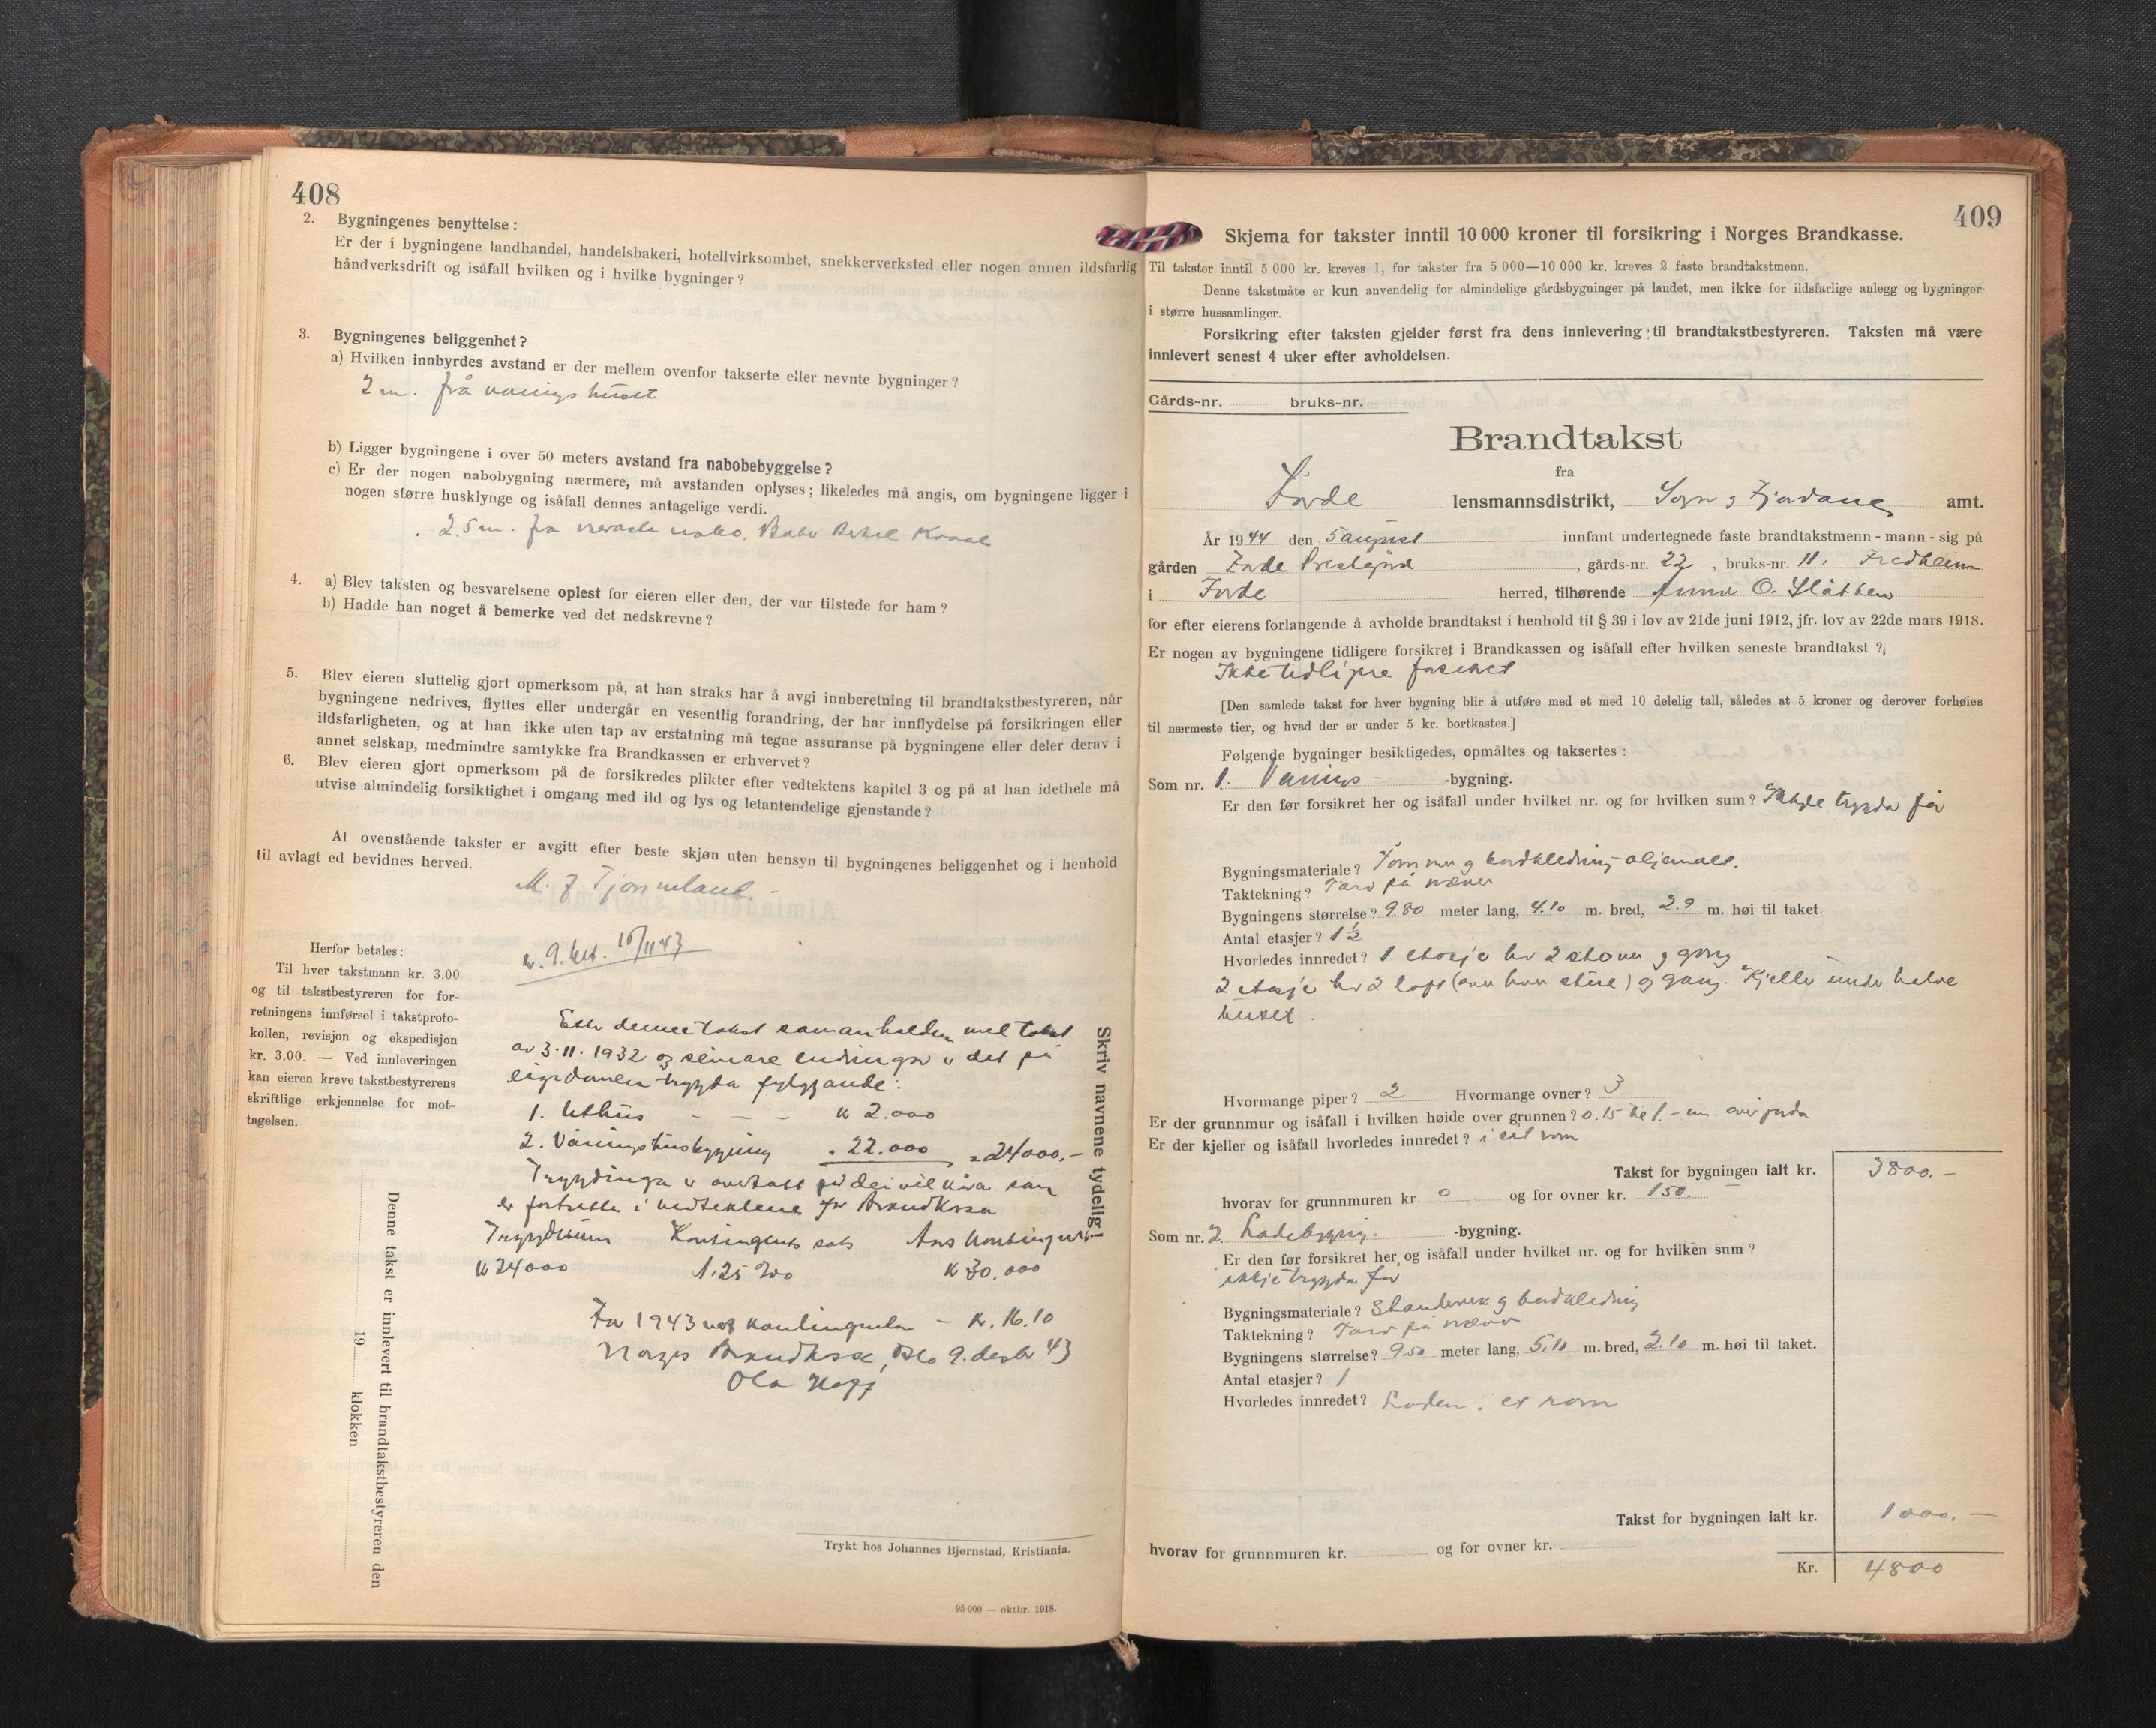 408
2. Bygningenes benyttelse:
Er der i bygningene landhandel, handelsbakeri, hotellvirksomhet, snekkerverksted eller nogen annen ildsfarlig
håndverksdrift og isåfall hvilken og i hvilke bygninger?
3. Bygningenes beliggenhet?
a) Hvilken innbyrdes avstand er der mellem ovenfor takserte eller nevnte bygninger?
2 m. frå vånings huset
b) Ligger bygningene i over 50 meters avstand fra nabobebyggelse?
c) Er der nogen nabobygning nærmere, må avstanden oplyses; likeledes må angis, om bygningene ligger i
nogen større husklynge og isåfall dennes antagelige verdi.
25 m. fra næraste nabo,
4. a) Blev taksten og besvarelsene oplest for eieren eller den, der var tilstede for ham?
b) Hadde han noget å bemerke ved det nedskrevne?
5. Blev eieren sluttelig gjort opmerksom på, at han straks har å avgi innberetning til brandtakstbestyreren, når
bygningene nedrives, flyttes eller undergår en vesentlig forandring, der har innflydelse på forsikringen eller
ildsfarligheten, og at han ikke uten tap av erstatning må tegne assuranse på bygningene eller deler derav i
annet selskap, medmindre samtykke fra Brandkassen er erhvervet?
6. Blev eieren gjort opmerksom på de forsikredes plikter efter vedtektens kapitel 3 og på at han idethele må
utvise almindelig forsiktighet i omgang med ild og lys og letantendelige gjenstande?
At ovenstående takster er avgitt efter beste skjøn uten hensyn til bygningenes beliggenhet og i henhold
til avlagt ed bevidnes herved.
M. J. Tjønneland.
Herfor betales:
Til hver takstmann kr. 3.00
og til takstbestyreren for for-
retningens innførsel i takstproto-
kollen, revisjon og ekspedisjon
kr. 3.00. — Ved innleveringen
kan eieren kreve takstbestyrerens
skriftlige erkjennelse for mot-
tagelsen.
10/11 43
Etter denne takst samanhalden med takst
av 3.11.1932 og seinare endringar er det på
eigedomen trygda fylgjande:
1. Uthus - - - kr 2.000
2. Våningshusbygning " 22.000 = 24000.-
Trygdinga er avsett på dei vilkåra som
er fortsette i vedtektene for Brandkassa
Trygdesum Kontingents sats Års kontingent
kr 24000 1.25 ‰ kr 30.000
For 1943 vert kontingenten - kr. 16.10
Norges Brandkasse, Oslo 9. desbr 43
Ola Hopp
Skriv navnene tydelig!
Denne takst er innlevert til brandtakstbestyreren den
19 klokken
Trykt hos Johannes Bjørnstad, Kristiania.
95 000 — oktbr. 1918.
409
Skjema for takster inntil 10 000 kroner til forsikring i Norges Brandkasse.
Til takster inntil 5 000 kr. kreves 1, for takster fra 5 000—10 000 kr. kreves 2 faste brandtakstmenn.
Denne takstmåte er kun anvendelig for almindelige gårdsbygninger på landet, men ikke for ildsfarlige anlegg og bygninger
i større hussamlinger.
Forsikring efter taksten gjelder først fra dens innlevering til brandtakstbestyreren. Taksten må være
innlevert senest 4 uker efter avholdelsen.
Gårds-nr. bruks-nr.
Brandtakst
fra
Førde lensmannsdistrikt, Sogn og Fjordane amt.
År 1944 den 5 august innfant undertegnede faste brandtakstmenn - mann - sig på
gården Førde Prestegård, gårds-nr. 22, bruks-nr. 11. Fredheim
i Førde herred, tilhørende Anna O. Slåtten
for efter eierens forlangende å avholde brandtakst i henhold til § 39 i lov av 21de juni 1912, jfr. lov av 22de mars 1918.
Er nogen av bygningene tidligere forsikret i Brandkassen og isåfall efter hvilken seneste brandtakst?
Ikke tidligere forsikret
[Den samlede takst for hver bygning blir å utføre med et med 10 delelig tall, således at 5 kroner og derover forhøies
til nærmeste tier, og hvad der er under 5 kr. bortkastes.]
Følgende bygninger besiktigedes, opmåltes og taksertes:
Som nr. 1. Vånings- -bygning.
Er den før forsikret her og isåfall under hvilket nr. og for hvilken sum? Ikkje trygda før
Bygningsmateriale? Tømmer og bordkledning oljemalt.
Taktekning? Torv på never
Bygningens størrelse? 9.80 meter lang, 4.10 m. bred, 2.9 m. høi til taket.
Antal etasjer? 1½
Hvorledes innredet? 1 etasje har 2 stover og gong
2 etasje har 2 loft (over hver stue) og gang. Kjeller under halve
huset.
Hvormange piper? 2 Hvormange ovner? 3
Er der grunnmur og isåfall i hvilken høide over grunnen? 0.15 til 1.- m. over jorda
Er der kjeller og isåfall hvorledes innredet? i eit rom
Takst for bygningen ialt kr. 3800.-
hvorav for grunnmuren kr. 0 og for ovner kr. 150.
Som nr. 2 Ladebygning. -bygning.
Er den før forsikret her og isåfall under hvilket nr. og for hvilken sum?
ikkje trygda før
Bygningsmateriale? Standverk og bordkledning
Taktekning? Torv på never
Bygningens størrelse? 9.50 meter lang, 5.10 m. bred, 2.10 m. høi til taket.
Antal etasjer? 1
Hvorledes innredet? Laden i et rom
Takst for bygningen ialt kr. 1000.-
hvorav for grunnmuren kr. og for ovner kr.
Kr. 4800